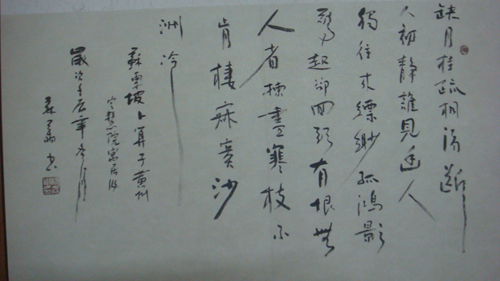 缺月挂疏桐漏斷
人初靜誰見幽人
獨往来縹緲孤鴻影
驚起却回頭有恨無
人省揀盡寒枝不
肯棲寂寞沙
洲冷
蘇東坡卜算子黄州
定慧院寓居作
歲次壬辰年冬月
書